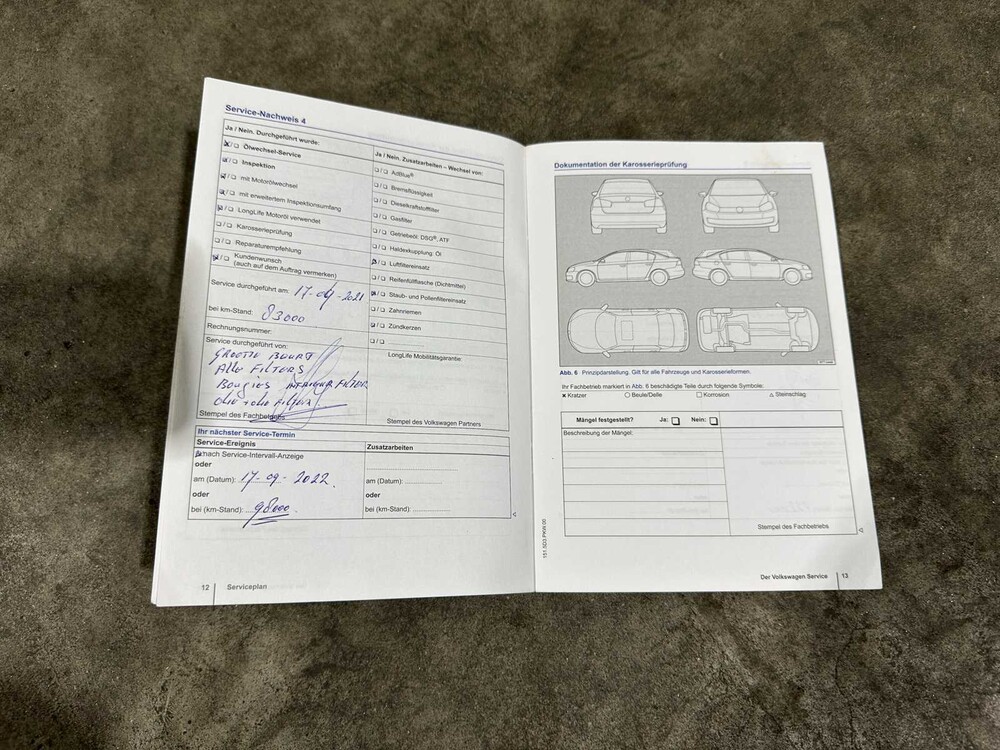 Service-Nachweis 4
Ja / Nein. Durchgeführt wurde:
Ölwechsel-Service
Inspektion
mit Motorölwechsel
mit erweitertem Inspektionsumfang
LongLife Motoröl verwendet
Karosserieprüfung
Reparaturempfehlung
Kundenwunsch
(auch auf dem Auftrag vermerken)
Service durchgeführt am: 17-09-2021
bei km-Stand: 83000
Rechnungsnummer:
Service durchgeführt von:
GROOTE BEURT
Alle FILTERS
Bougies INTERIEUR FILTER
olie + olie FILTER
Stempel des Fachbetriebs
Ja / Nein. Zusatzarbeiten – Wechsel von:
AdBlue®
Bremsflüssigkeit
Dieselkraftstofffilter
Gasfilter
Getriebeöl: DSG®, ATF
Haldexkupplung: Öl
Luftfiltereinsatz
Reifenfüllflasche (Dichtmittel)
Staub- und Pollenfiltereinsatz
Zahnriemen
Zündkerzen
LongLife Mobilitätsgarantie:
Stempel des Volkswagen Partners
Ihr nächster Service-Termin
Service-Ereignis
nach Service-Intervall-Anzeige
oder
am (Datum): 17-09-2022.
oder
bei (km-Stand): 98000.
Zusatzarbeiten
am (Datum):
oder
bei (km-Stand):
12 Serviceplan
Dokumentation der Karosserieprüfung
Abb. 6 Prinzipdarstellung. Gilt für alle Fahrzeuge und Karosserieformen.
Ihr Fachbetrieb markiert in Abb. 6 beschädigte Teile durch folgende Symbole:
Kratzer Beule/Delle Korrosion Steinschlag
Mängel festgestellt? Ja: Nein:
Beschreibung der Mängel:
Stempel des Fachbetriebs
151.5D3.PKW.00
Der Volkswagen Service 13